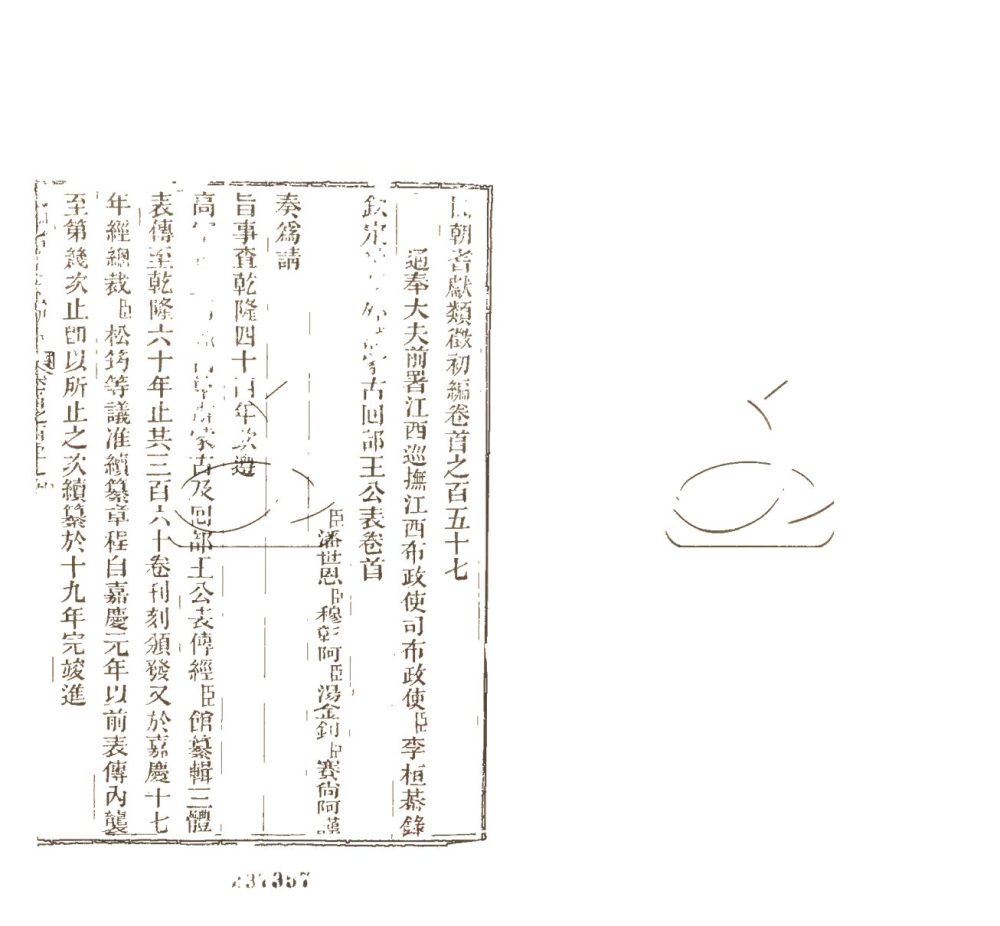 朝耆獻類徵初編卷首之百五十七
通奉大夫前署江西巡撫江西布政使司布政使臣李桓恭錄
欽定 外 蒙古回部王公表卷首
臣潘世恩臣穆彰阿臣湯金釗臣賽尚阿謹
奏爲請
旨事查乾隆四十四年欽遵
高 蒙古及回部王公表傳經臣館纂輯三體
表傳至乾隆六十年止共三百六十卷刊刻頒發又於嘉慶十七
年經總裁臣松筠等議准續纂章程自嘉慶元年以前表傳內襲
至第幾次止卽以所止之次續纂於十九年完竣進
237357